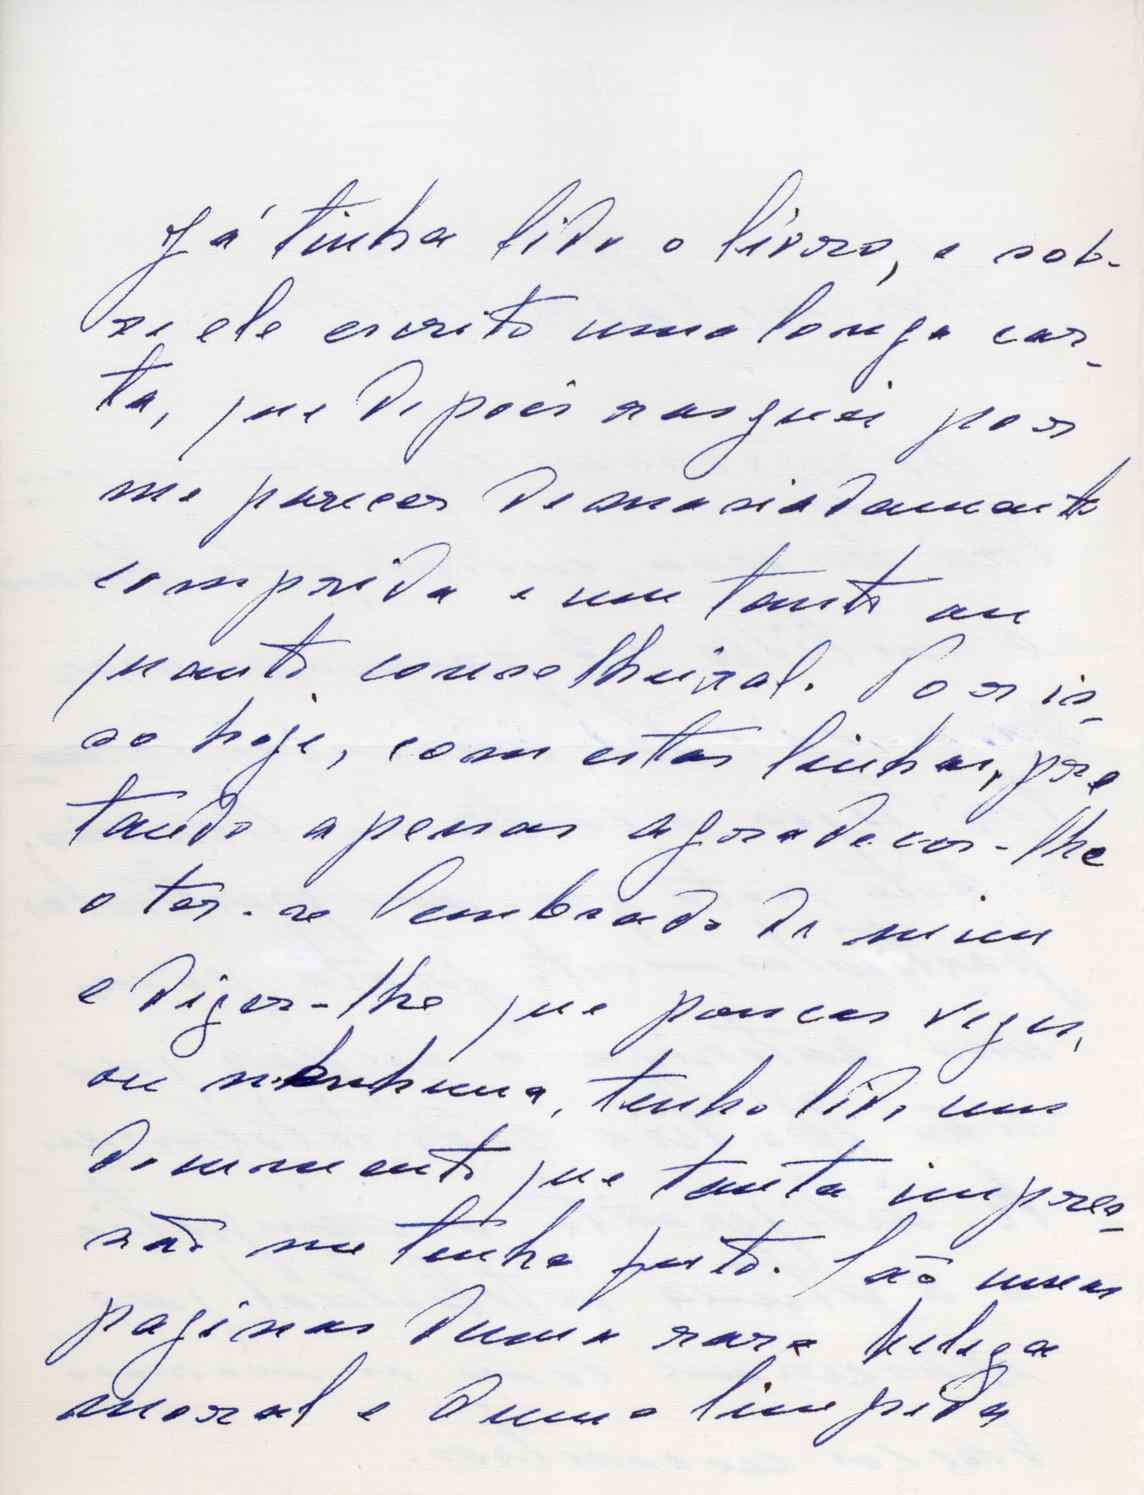 Já tinha lido o livro, e sob-
re ele escrito uma longa car-
ta, que depois rasguei por
me parecer demasiadamente
comprida e um tanto ou
quanto conselheiral. Por is-
so hoje, com estas linhas, pre
tendo apenas agradecer-lhe
o ter-se lembrado de mim
e dizer-lhe que poucas vezes,
ou nenhuma, tenho lido um
documento que tanta impres-
são me tenha feito. São umas
paginas duma rara beleza
moral e duma limpida